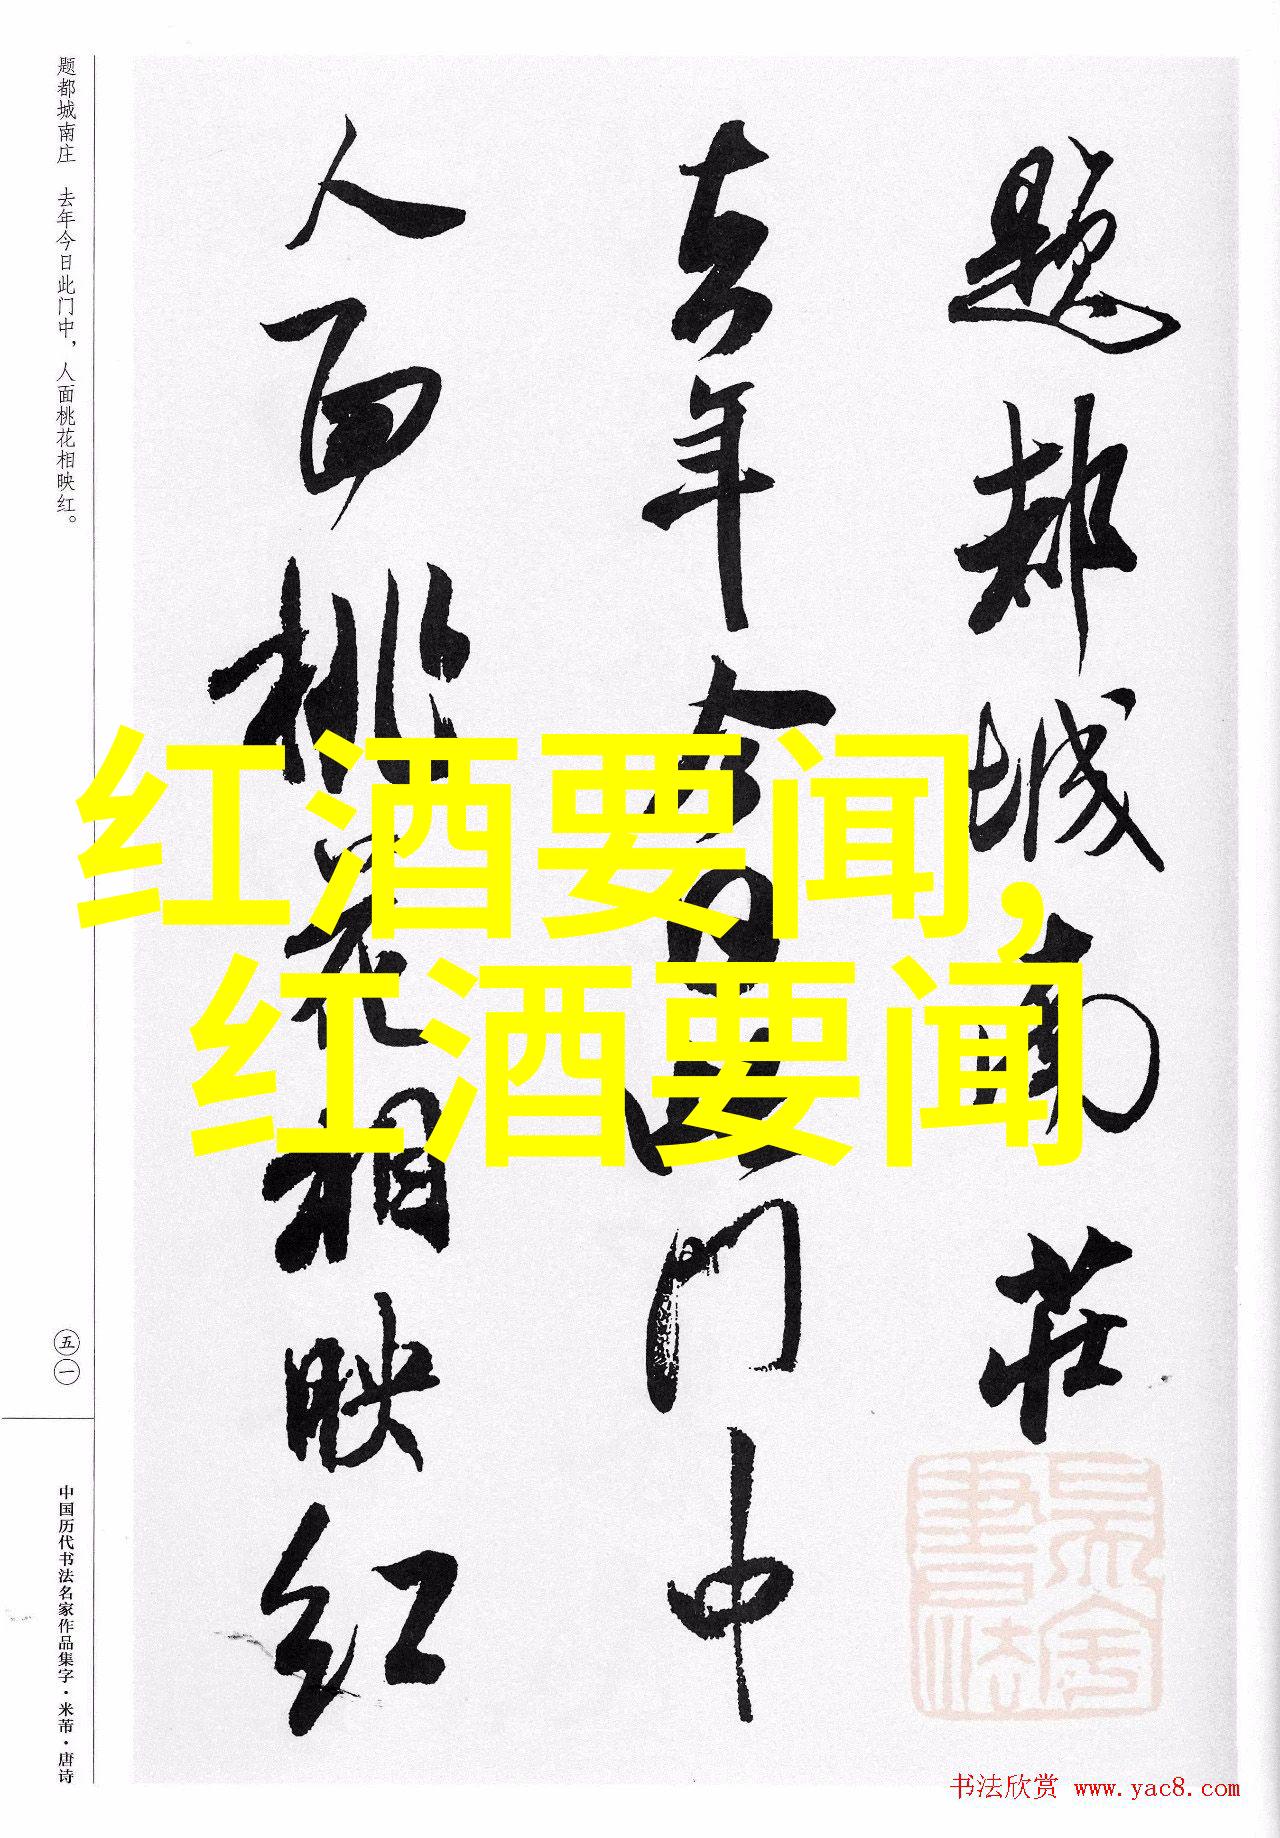 题都城南莊
去年今日此门中
人面桃花相映红
题都城南庄 去年今日此门中，人面桃花相映红。
五一
中国历代书法名家作品集字·米芾·唐诗
红酒要闻，
红酒要闻
書法欣赏 www.yac8.com